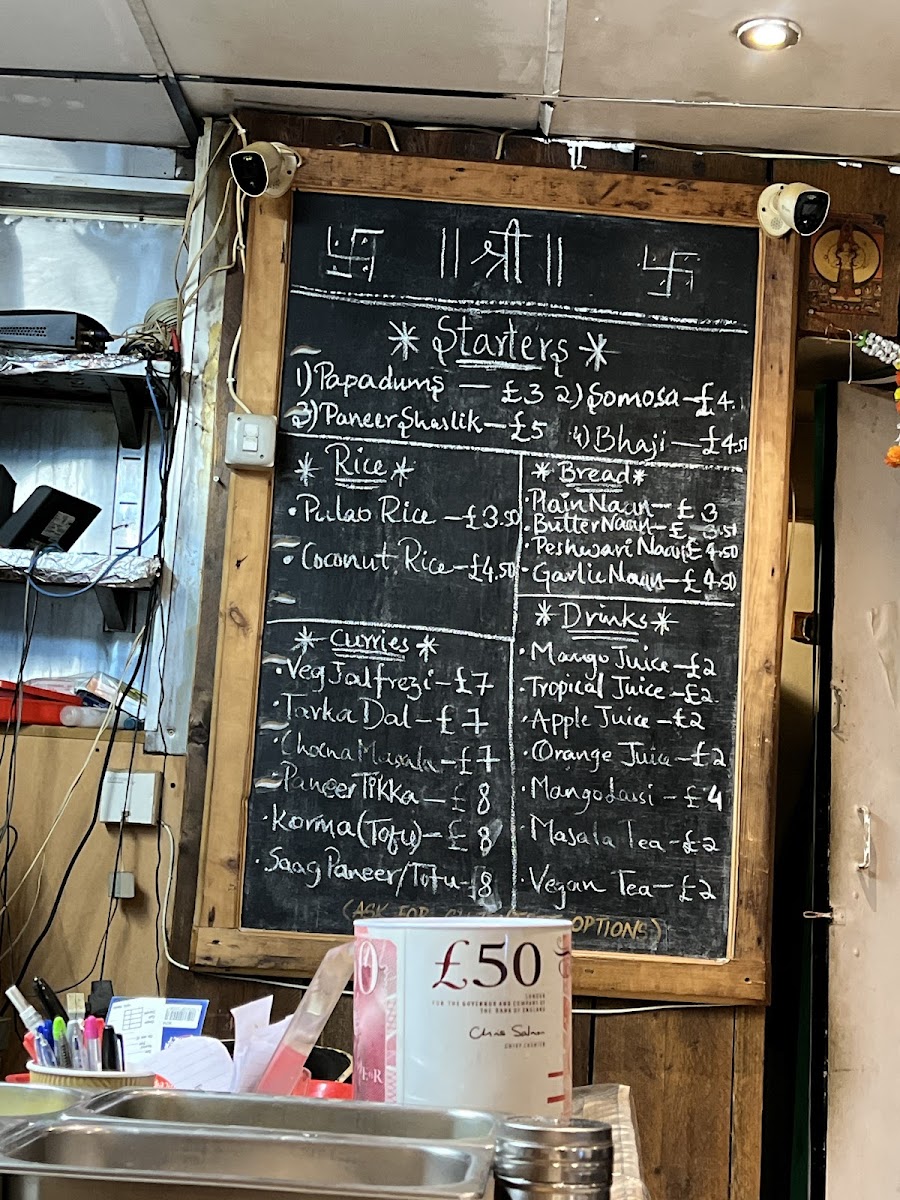 卐 ॥ श्री ॥ 卐
* Starters *
1) Papadums — £3 2) Somosa - £4.
3) Paneer Shaslik - £5 4) Bhaji — £4.50
* Rice *
• Pulao Rice - £3.50
• Coconut Rice - £4.50
* Bread *
• Plain Naan - £3
• Butter Naan - £3.50
• Peshwari Naan £4.50
• Garlic Naan - £4.50
* Curries *
• Veg Jalfrezi - £7
• Tarka Dal - £7
• Chana Masala - £7
• Paneer Tikka - £8
• Korma (Tofu) - £8
• Saag Paneer/Tofu - £8
* Drinks *
• Mango Juice - £2
• Tropical Juice - £2
• Apple Juice - £2
• Orange Juice - £2
• Mango Lassi - £4
• Masala Tea - £2
• Vegan Tea - £2
(ASK FOR OPTIONS)
£50
LONDON
FOR THE GOVERNOR AND COMPANY OF
THE BANK OF ENGLAND
Chris Salmon
CHIEF CASHIER